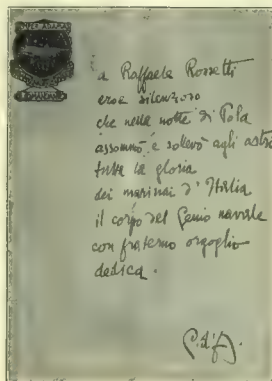 a Raffaele Rossetti
eroe silenzioso
che nella notte di Pola
assommò e sollevò agli astri
tutta la gloria
dei marinai d'Italia
il corpo del Genio navale
con fraterno orgoglio
dedica.